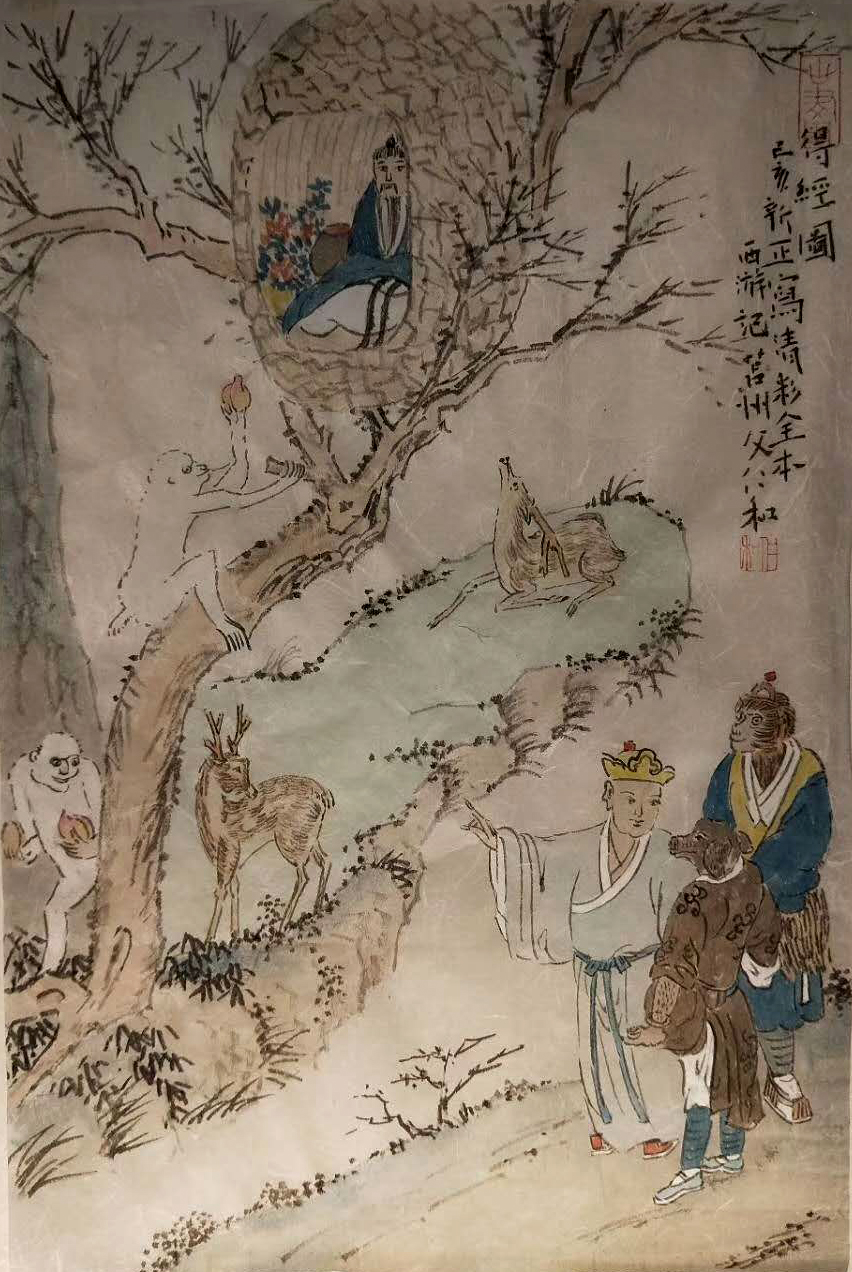 得經圖
己亥新正寫清彩全本
西游記 莒州父仁和